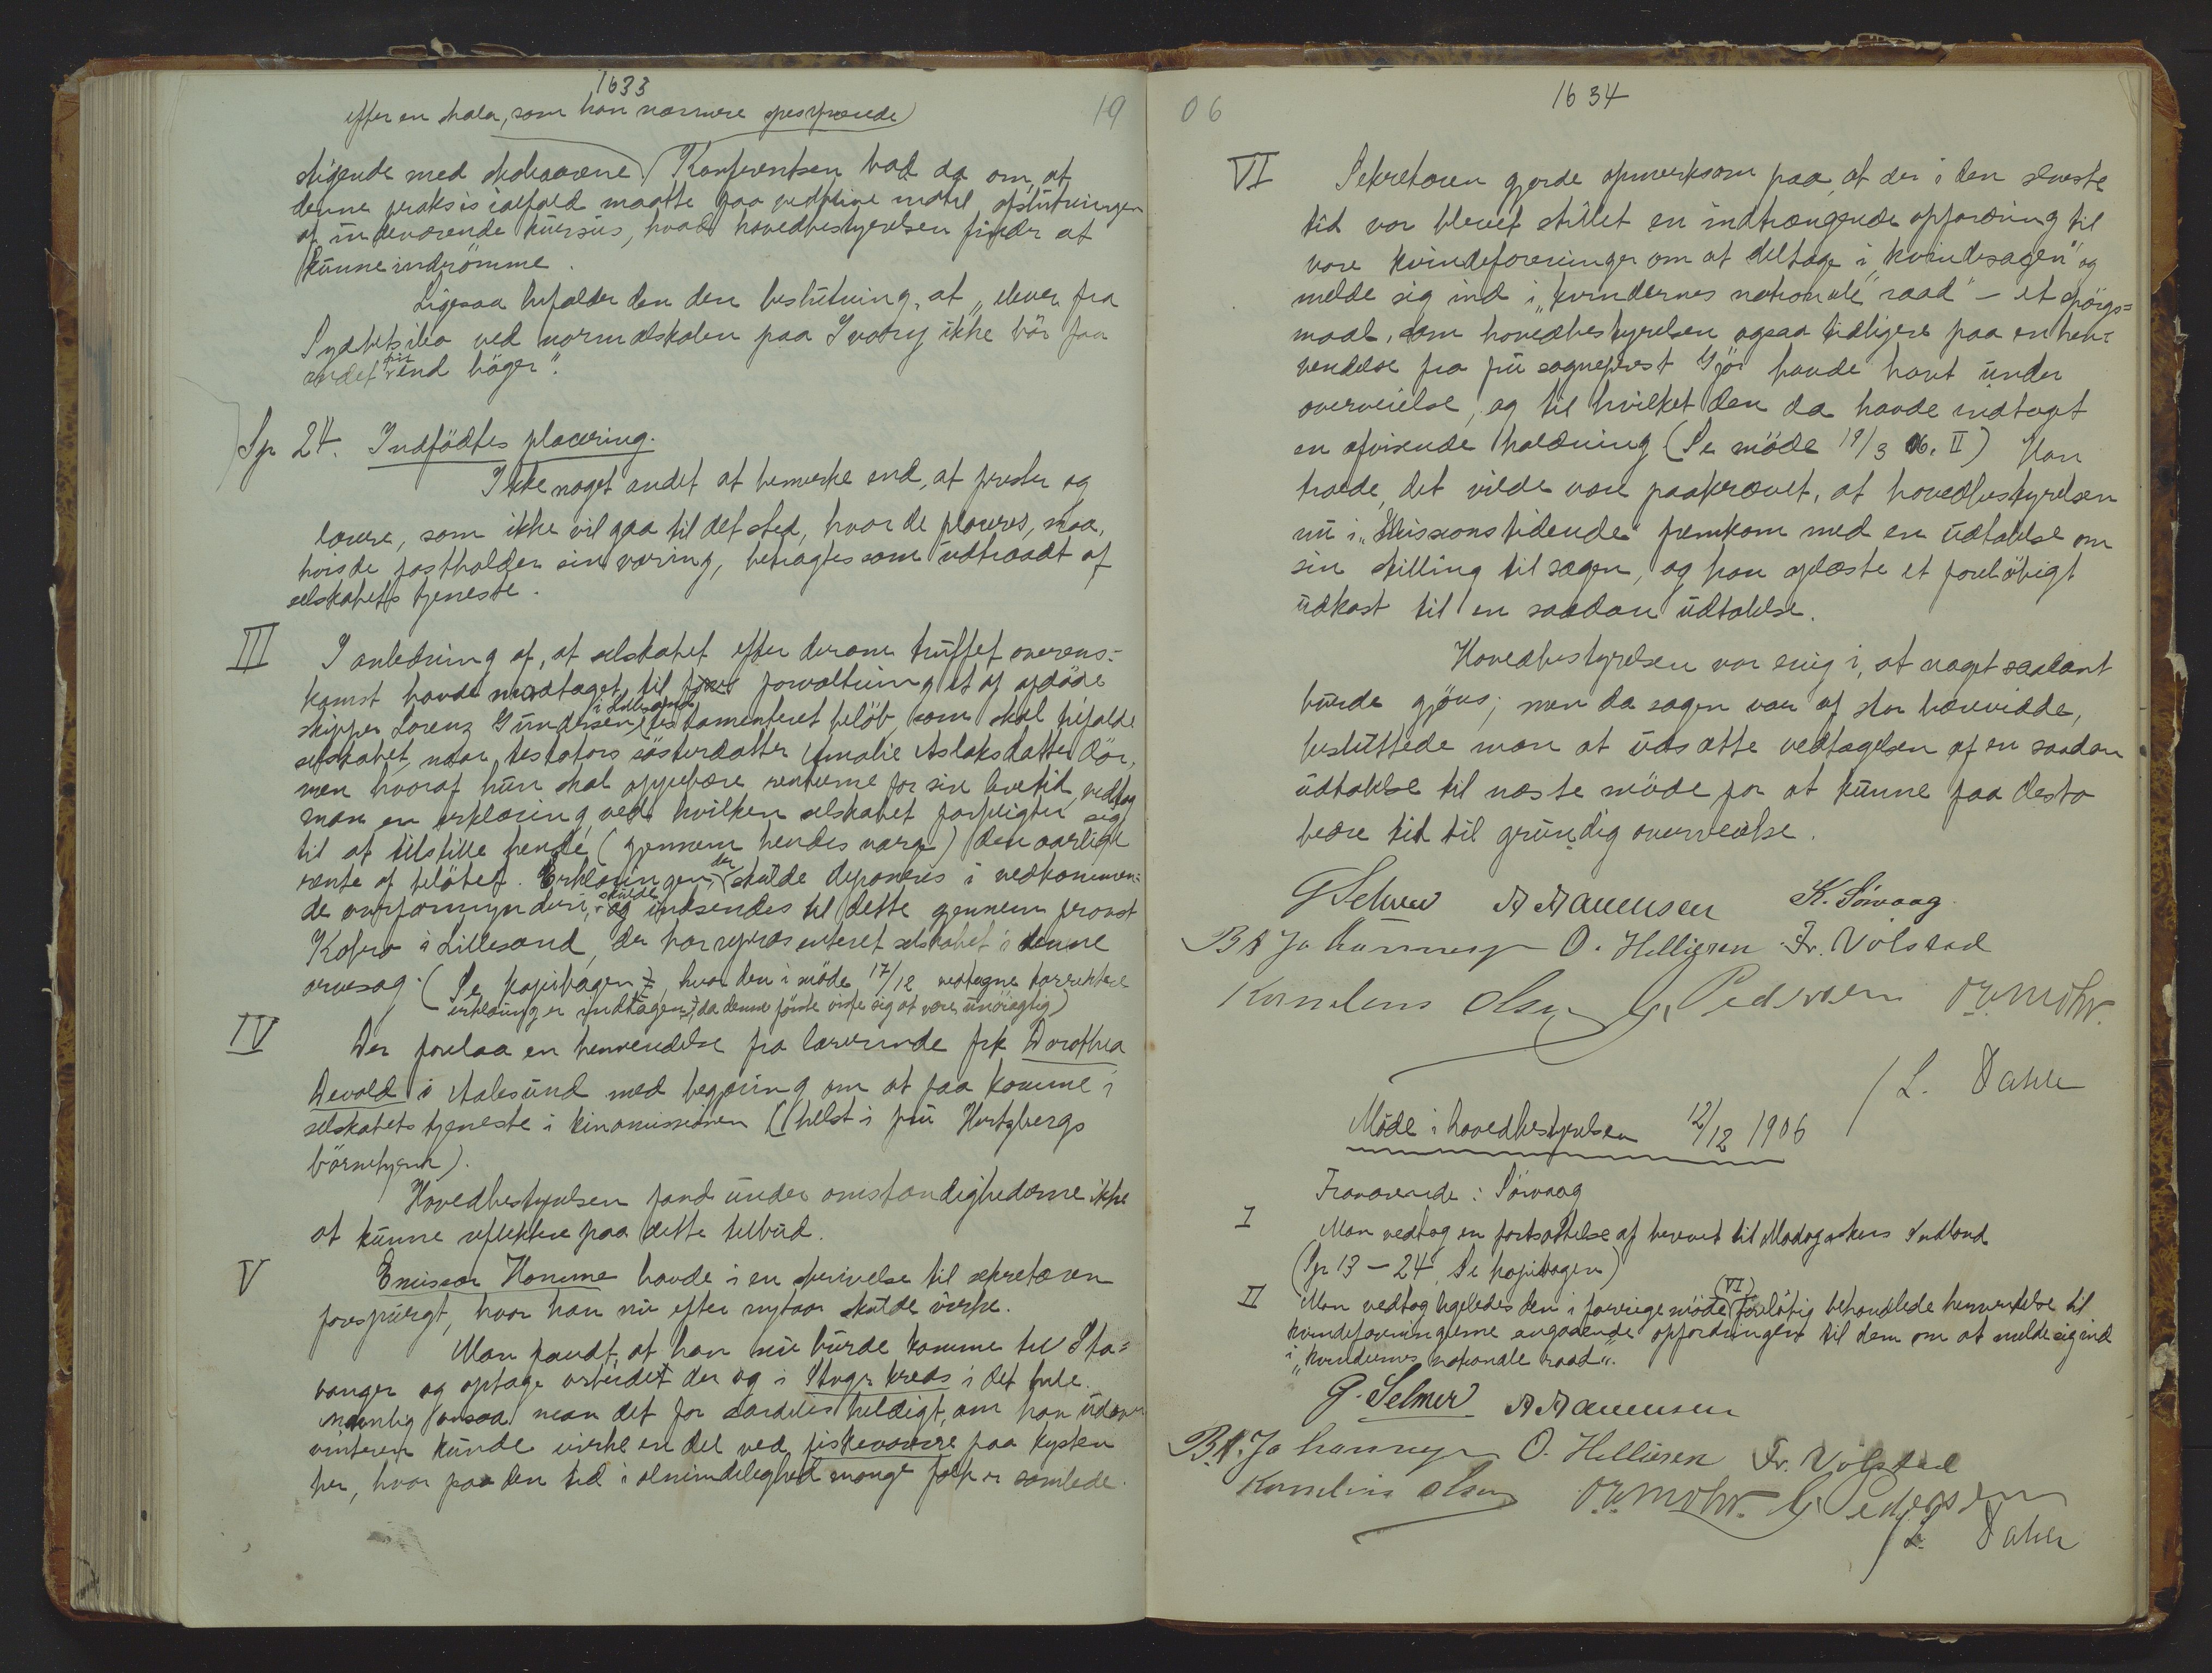 1633
19
efter en skala, som han nærmere
stigende med skoleaarene. Konferentsen bad da om, at
denne praksis ialfald maatte faa vedblive indtil afslutningen
af indeværende kursus, hvad hovedbestyrelsen finder at
kunne indrømme.
Ligesaa bifalder den den beslutning, at „elever fra
ved normalskolen paa Ivory ikke bør faa
andet frit end bøger".
Sp 24. Indfødtes placering.
Ikke noget andet at bemerke end, at prester og
lærere, som ikke vil gaa til det sted, hvor de placeres, maa,
hvis de fastholder sin vægring, betragtes som udtraadt af
selskabets tjeneste.
III I anledning af, at selskabet efter derom truffet overens-
komst havde modtaget til forvaltning et af afdøde
skipper Lorenz Gundersen i Lillesand testamenteret beløb, som skal tilfalde
selskabet, naar testators søsterdatter Amalie Aslaksdatter dør,
men hvoraf hun skal oppebære renterne for sin levetid, vedtog
man en erklæring, ved hvilken selskabet forpligter sig
til at tilstille hende (gjennem hendes værge) den aarlige
rente af beløbet. Erklæringen, der skulde deponeres i vedkommen-
de overformynderi, skulde og indsendes til dette gjennem provst
Kobro i Lillesand, der har repræsenteret selskabet i denne
arvesag. (Se kopibogen, hvor den i møde 17/12 vedtagne korrektere
erklæring er indtagen, da denne første viste sig at være unøiagtig)
IV Der forelaa en henvendelse fra lærerinde frk Dorothea
Devold i Aalesund med begjæring om at faa komme i
selskabets tjeneste i kinamissionen (helst i fru Hertzbergs
børnehjem).
Hovedbestyrelsen fandt under omstændighederne ikke
at kunne reflektere paa dette tilbud.
V Emissær Homme havde i en skrivelse til sekretæren
forespurgt, hvor han nu efter nytaar skulde virke.
Man fandt, at han nu burde komme til Sta-
vanger og optage arbeidet der og i Stvgr kreds i det hele.
Navnlig ansaa man det for særdeles heldigt, om han udover
vinteren kunde virke en del ved fiskeværene paa kysten
her, hvor paa den tid i almindelighed mange folk er samlede.
06
1634
VI Sekretæren gjorde opmerksom paa, at der i den seneste
tid var blevet stillet en indtrængende opfordring til
vore kvindeforeninger om at deltage i „kvindesagen" og
melde sig ind i „kvindernes nationale raad" – et spørgs=
maal, som hovedbestyrelsen ogsaa tidligere paa en hen-
vendelse fra fru sogneprest Gjør havde havt under
overveielse, og til hvilket den da havde indtaget
en afvisende holdning (Se møde 19/3 06. II) Han
troede, det vilde være paakrævet, at hovedbestyrelsen
nu i „Missionstidende" fremkom med en udtalelse om
sin stilling til sagen, og han oplæste et foreløbigt
udkast til en saadan udtalelse.
Hovedbestyrelsen var enig i, at noget saadant
burde gjøres; men da sagen var af stor rækevidde,
besluttede man at udsætte vedtagelsen af en saadan
udtalelse til næste møde for at kunne faa desto
bedre tid til grundig overveielse.
G Selmer A Aanensen K. Sørvaag
B A Johannesen O. Helliesen Fr. Volstad
Kornelius Olsen G. Pedersen O. E. Mohr.
/ L. Dahle
Møde i hovedbestyrelsen 12/12 1906
Fraværende: Sørvaag
I Man vedtog en fortsættelse af brevet til Madagaskars Indland
(Sp 13 – 24, Se kopibogen)
II Man vedtog ligeledes den i forrige møde (VI) foreløbig behandlede henvendelse til
kvindeforeningerne angaaende opfordringen til dem om at melde sig ind
i „kvindernes nationale raad".
G. Selmer A Aanensen
B.A. Johannesen O. Helliesen Fr. Volstad
Kornelius Olsen O. E. Mohr. G. Pedersen
/ L. Dahle